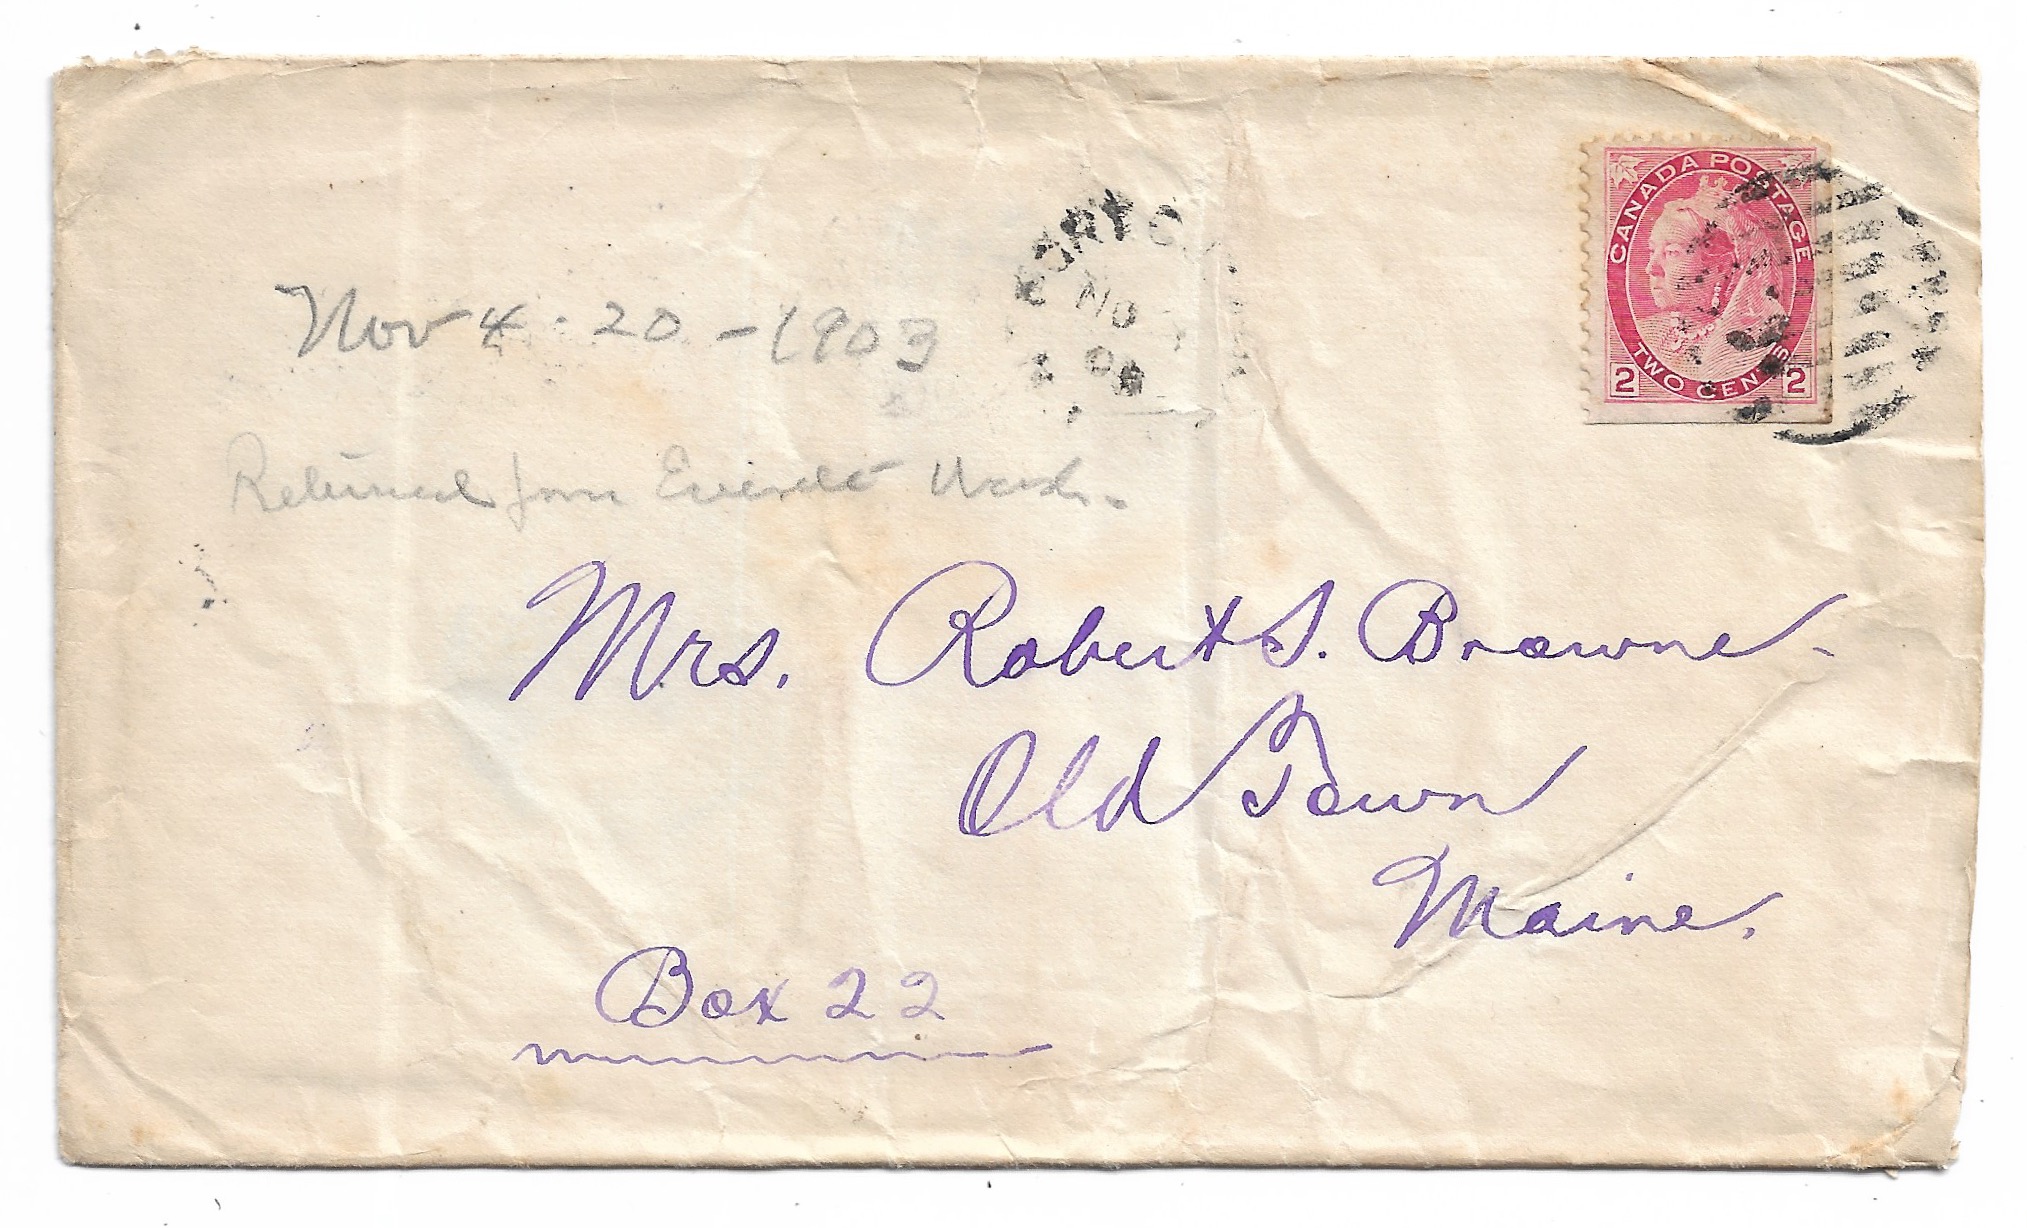 CANADA POSTAGE
TWO CENTS
2 2
NO
Nov 4 · 20 - 1903
Returned from Everett Wash-
Mrs. Robert S. Browne -
Old Town
Maine.
Box 22